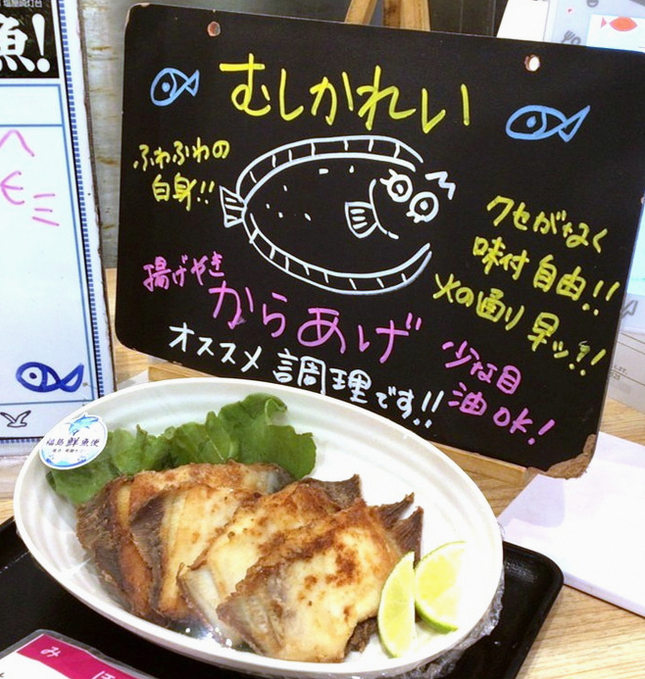 魚!
むしかれい
ふわふわの
自身!!
クセがなく
味付自由!!
火の通り早ッ!!
揚げやき
からあげ
少な目
油OK!
オススメ調理です!!
福島鮮魚便
みほ